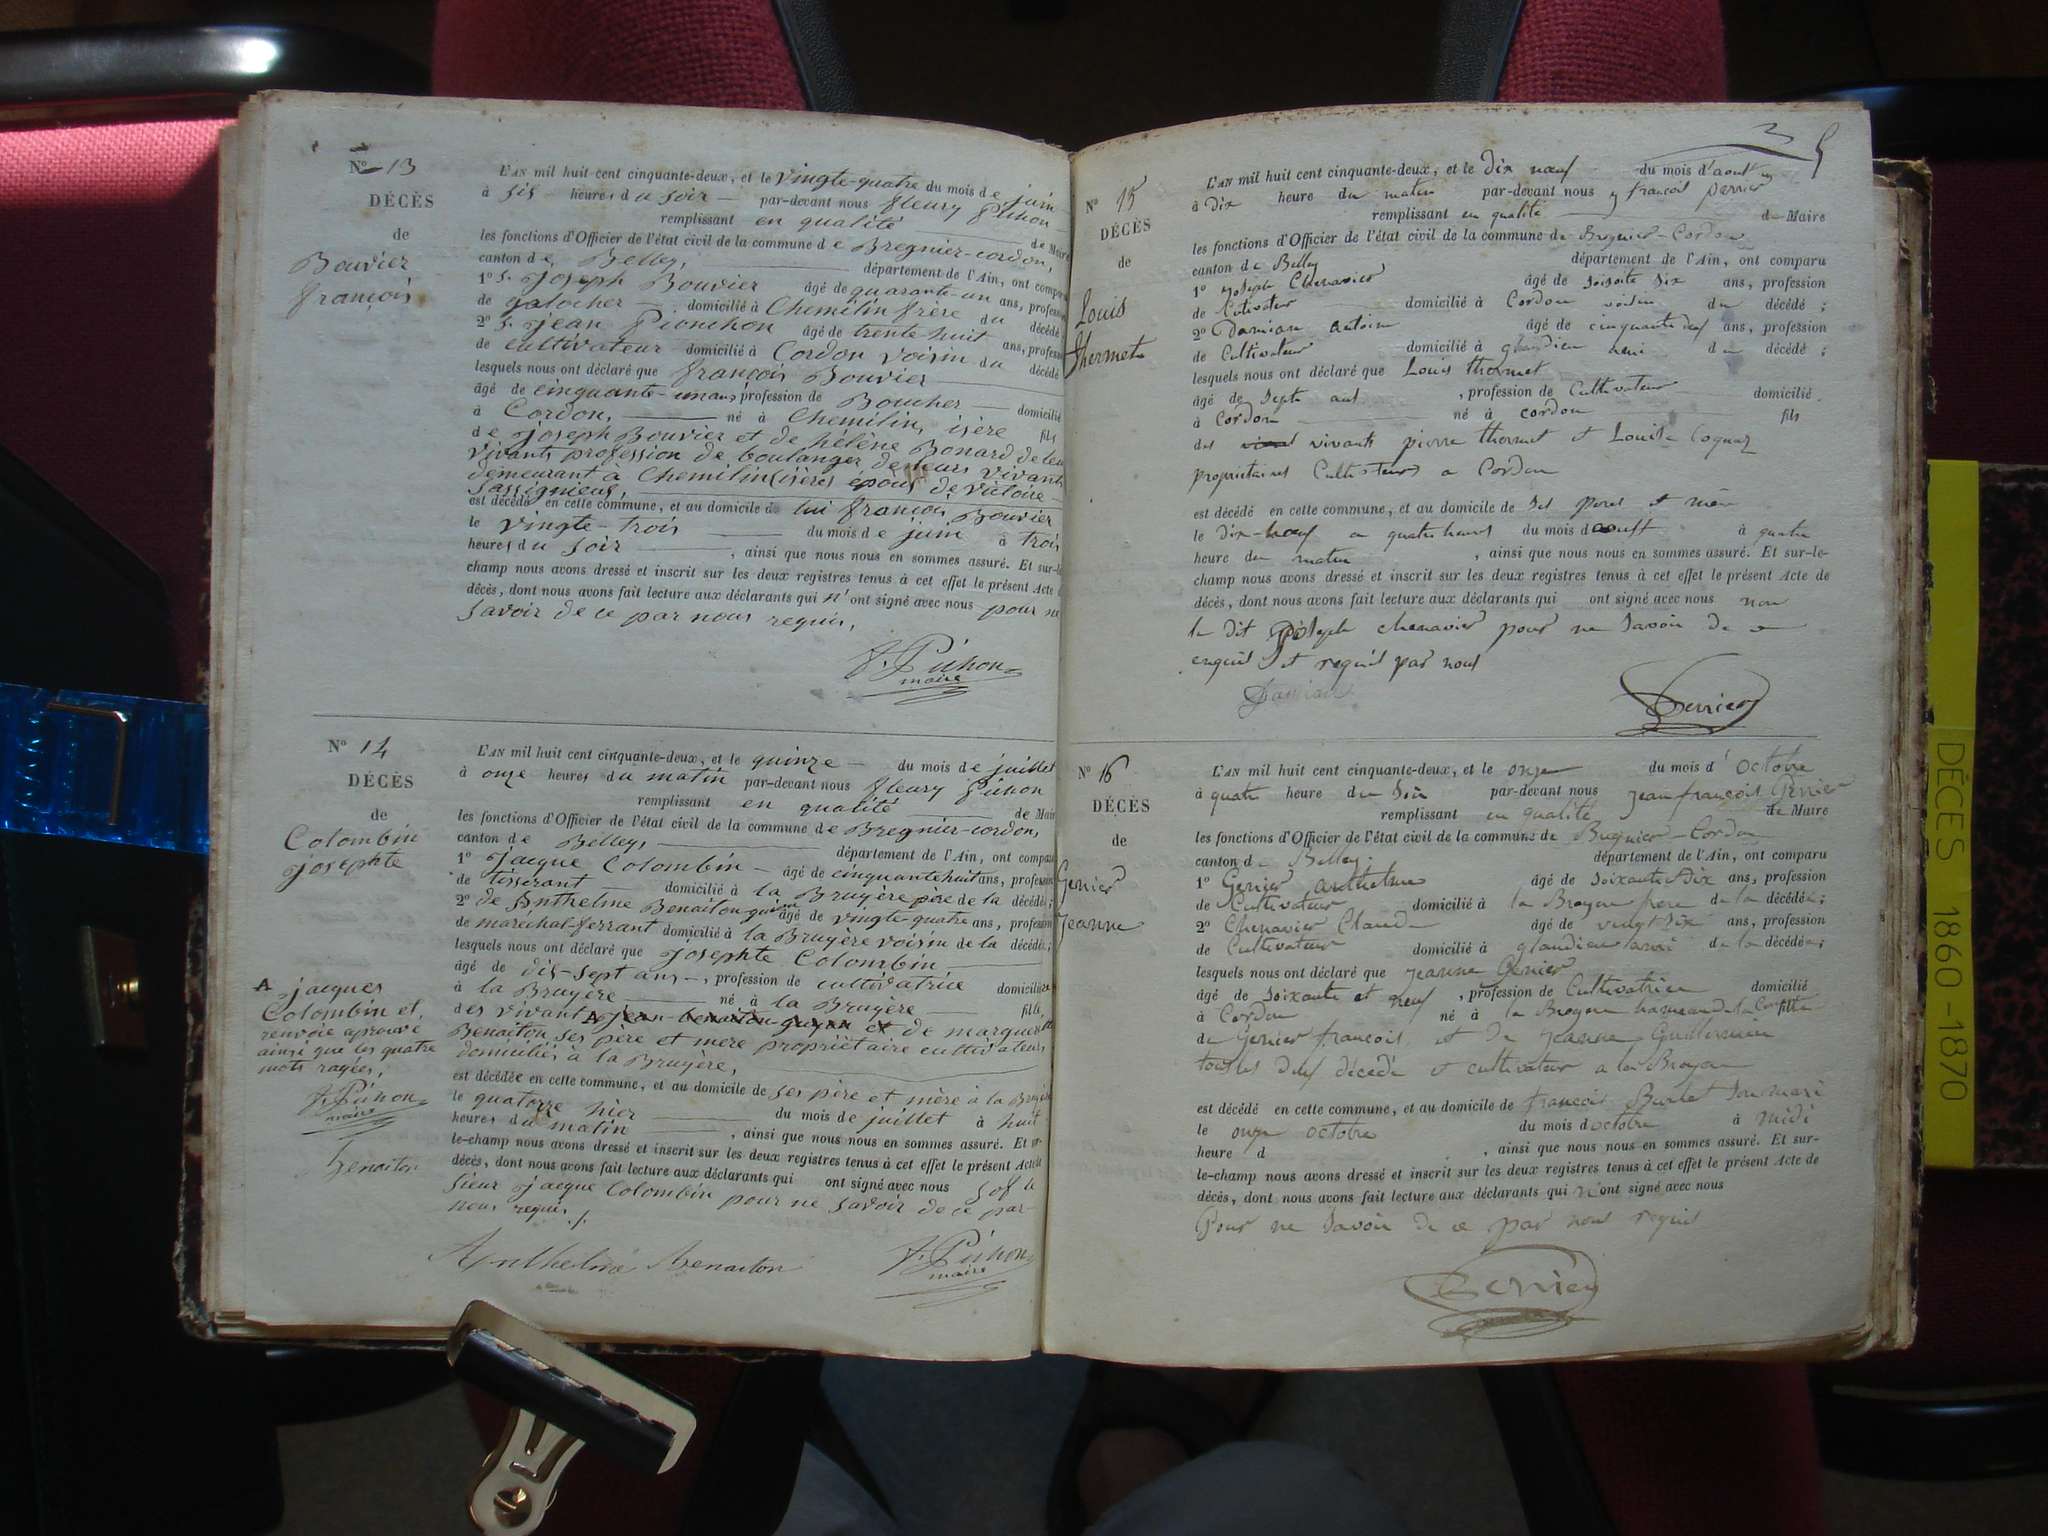 N° 13
DÉCÈS
de
Bouvier
françois
L'AN mil huit cent cinquante-deux, et le vingte-quatre du mois de juin
à sis heures du soir par-devant nous fleury Pichon
remplissant en qualité de Maire
les fonctions d'Officier de l'état civil de la commune de Bregnier-cordon,
canton de Belley, département de l'Ain, ont comparu
1° S. joseph Bouvier âgé de quarante-un ans, profession
de galocher domicilié à Chemilin frère du décédé
2° S. jean Pionchon âgé de trente huit ans, profession
de cultivateur domicilié à Cordon voisin du décédé
lesquels nous ont déclaré que françois Bouvier
âgé de cinquante-un ans profession de Boucher domicilié
à Cordon, né à Chemilin, isère fils
de joseph Bouvier et de hélène Bonard de leu
vivants profession de boulanger de leurs vivants
demeurant à Chemilin (isère) epous de victoire
Sassignieus,
est décédé en cette commune, et au domicile de lui françois Bouvier
le vingte-trois du mois de juin à trois
heures du soir , ainsi que nous nous en sommes assuré. Et sur-le-
champ nous avons dressé et inscrit sur les deux registres tenus à cet effet le présent Acte
décès, dont nous avons fait lecture aux déclarants qui n'ont signé avec nous pour ne
savoir de ce par nous requis.
f. Pichon
maire
N° 14
DÉCÈS
de
Colombin
josephte
L'AN mil huit cent cinquante-deux, et le quinze du mois de juillet
à onze heures du matin par-devant nous fleury Pichon
remplissant en qualité de Maire
les fonctions d'Officier de l'état civil de la commune de Bregnier-cordon,
canton de Belley, département de l'Ain, ont comparu
1° jacque Colombin âgé de cinquante huit ans, profession
de tisserant domicilié à la Bruyère père de la décédée;
2° de Anthelme Benaiton âgé de vingte-quatre ans, profession
de maréchal-ferrant domicilié à la Bruyère voisin de la décédée;
lesquels nous ont déclaré que josephte Colombin
âgé de dis-sept ans , profession de cultivatrice domiciliée
à la Bruyère né à la Bruyère fille,
des vivant A jean benaiton guyon et de marguerite
Benaiton, ses père et mere propriètaire cultivateurs
domiciliés à la Bruyère,
est décédée en cette commune, et au domicile de ses père et mère à la Bruyère
le quatorze hier du mois de juillet à huit
heures du matin , ainsi que nous nous en sommes assuré. Et sur-
le-champ nous avons dressé et inscrit sur les deux registres tenus à cet effet le présent Acte de
décès, dont nous avons fait lecture aux déclarants qui ont signé avec nous sof le
sieur jacque Colombin pour ne savoir de ce par
nous requis ./.
A jacques
Colombin et,
renvoie aprouvé
ainsi que les quatre
mots rayées,
f. Pichon
maire
benaiton
Anthelme benaiton
f. Pichon
maire
5
N° 15
DÉCÈS
de
Louis
thermet
L'AN mil huit cent cinquante-deux, et le dix neuf du mois d'aout
à dix heure du matin par-devant nous françois perrier
remplissant en qualité de Maire
les fonctions d'Officier de l'état civil de la commune de Bregnier-Cordon
canton de Belley département de l'Ain, ont comparu
1° joseph Chenavier âgé de soisoite dix ans, profession
de Cutivateur domicilié à Cordon voisin du décédé;
2° Damian antoine âgé de cinquante deuf ans, profession
de Cultivateur domicilié à glandieu du décédé;
lesquels nous ont déclaré que Louis thermet
âgé de septe ans , profession de Cultivateur domicilié
à Cordon né à cordon fils
des vivants pierre thermet et Louise Coquaz
propriétaires Cultivateurs a Cordon
est décédé en cette commune, et au domicile de ses peres et mère
le dix-neuf a quatre heures du mois d'aoust à quatre
heure du matin , ainsi que nous nous en sommes assuré. Et sur-le-
champ nous avons dressé et inscrit sur les deux registres tenus à cet effet le présent Acte de
décès, dont nous avons fait lecture aux déclarants qui ont signé avec nous non
le dit joseph chenavier pour ne savoir de ce
enquis et requis par nous
Damian
Perrier
N° 16
DÉCÈS
de
Genier
jeanne
L'AN mil huit cent cinquante-deux, et le onze du mois d'octobre
à quatre heure du soir par-devant nous jean françois Perrier
remplissant en qualité de Maire
les fonctions d'Officier de l'état civil de la commune de Bregnier-Cordon
canton de Belley. département de l'Ain, ont comparu
1° Genier anthelme âgé de soixante dix ans, profession
de Cultivateur domicilié à la Broyere frere de la décédée;
2° Chenavier Claude âgé de vingt dix ans, profession
de Cultivateur domicilié à glandieu de la décédée;
lesquels nous ont déclaré que jeanne Genier
âgé de soixante et neuf , profession de Cultivatrice domicilié
à Cordon né à la Broyere hameau de la fille
de Genier françois et de jeanne Guillermin
tous les deuf décédé et cultivateur a la Broyere
est décédé en cette commune, et au domicile de françois Burlet son mari
le onze octobre du mois d'octobre à midi
heure d , ainsi que nous nous en sommes assuré. Et sur-
le-champ nous avons dressé et inscrit sur les deux registres tenus à cet effet le présent Acte de
décès, dont nous avons fait lecture aux déclarants qui n'ont signé avec nous
Pour ne savoir de ce par nous requis
Perrier
DÉCES 1860-1870